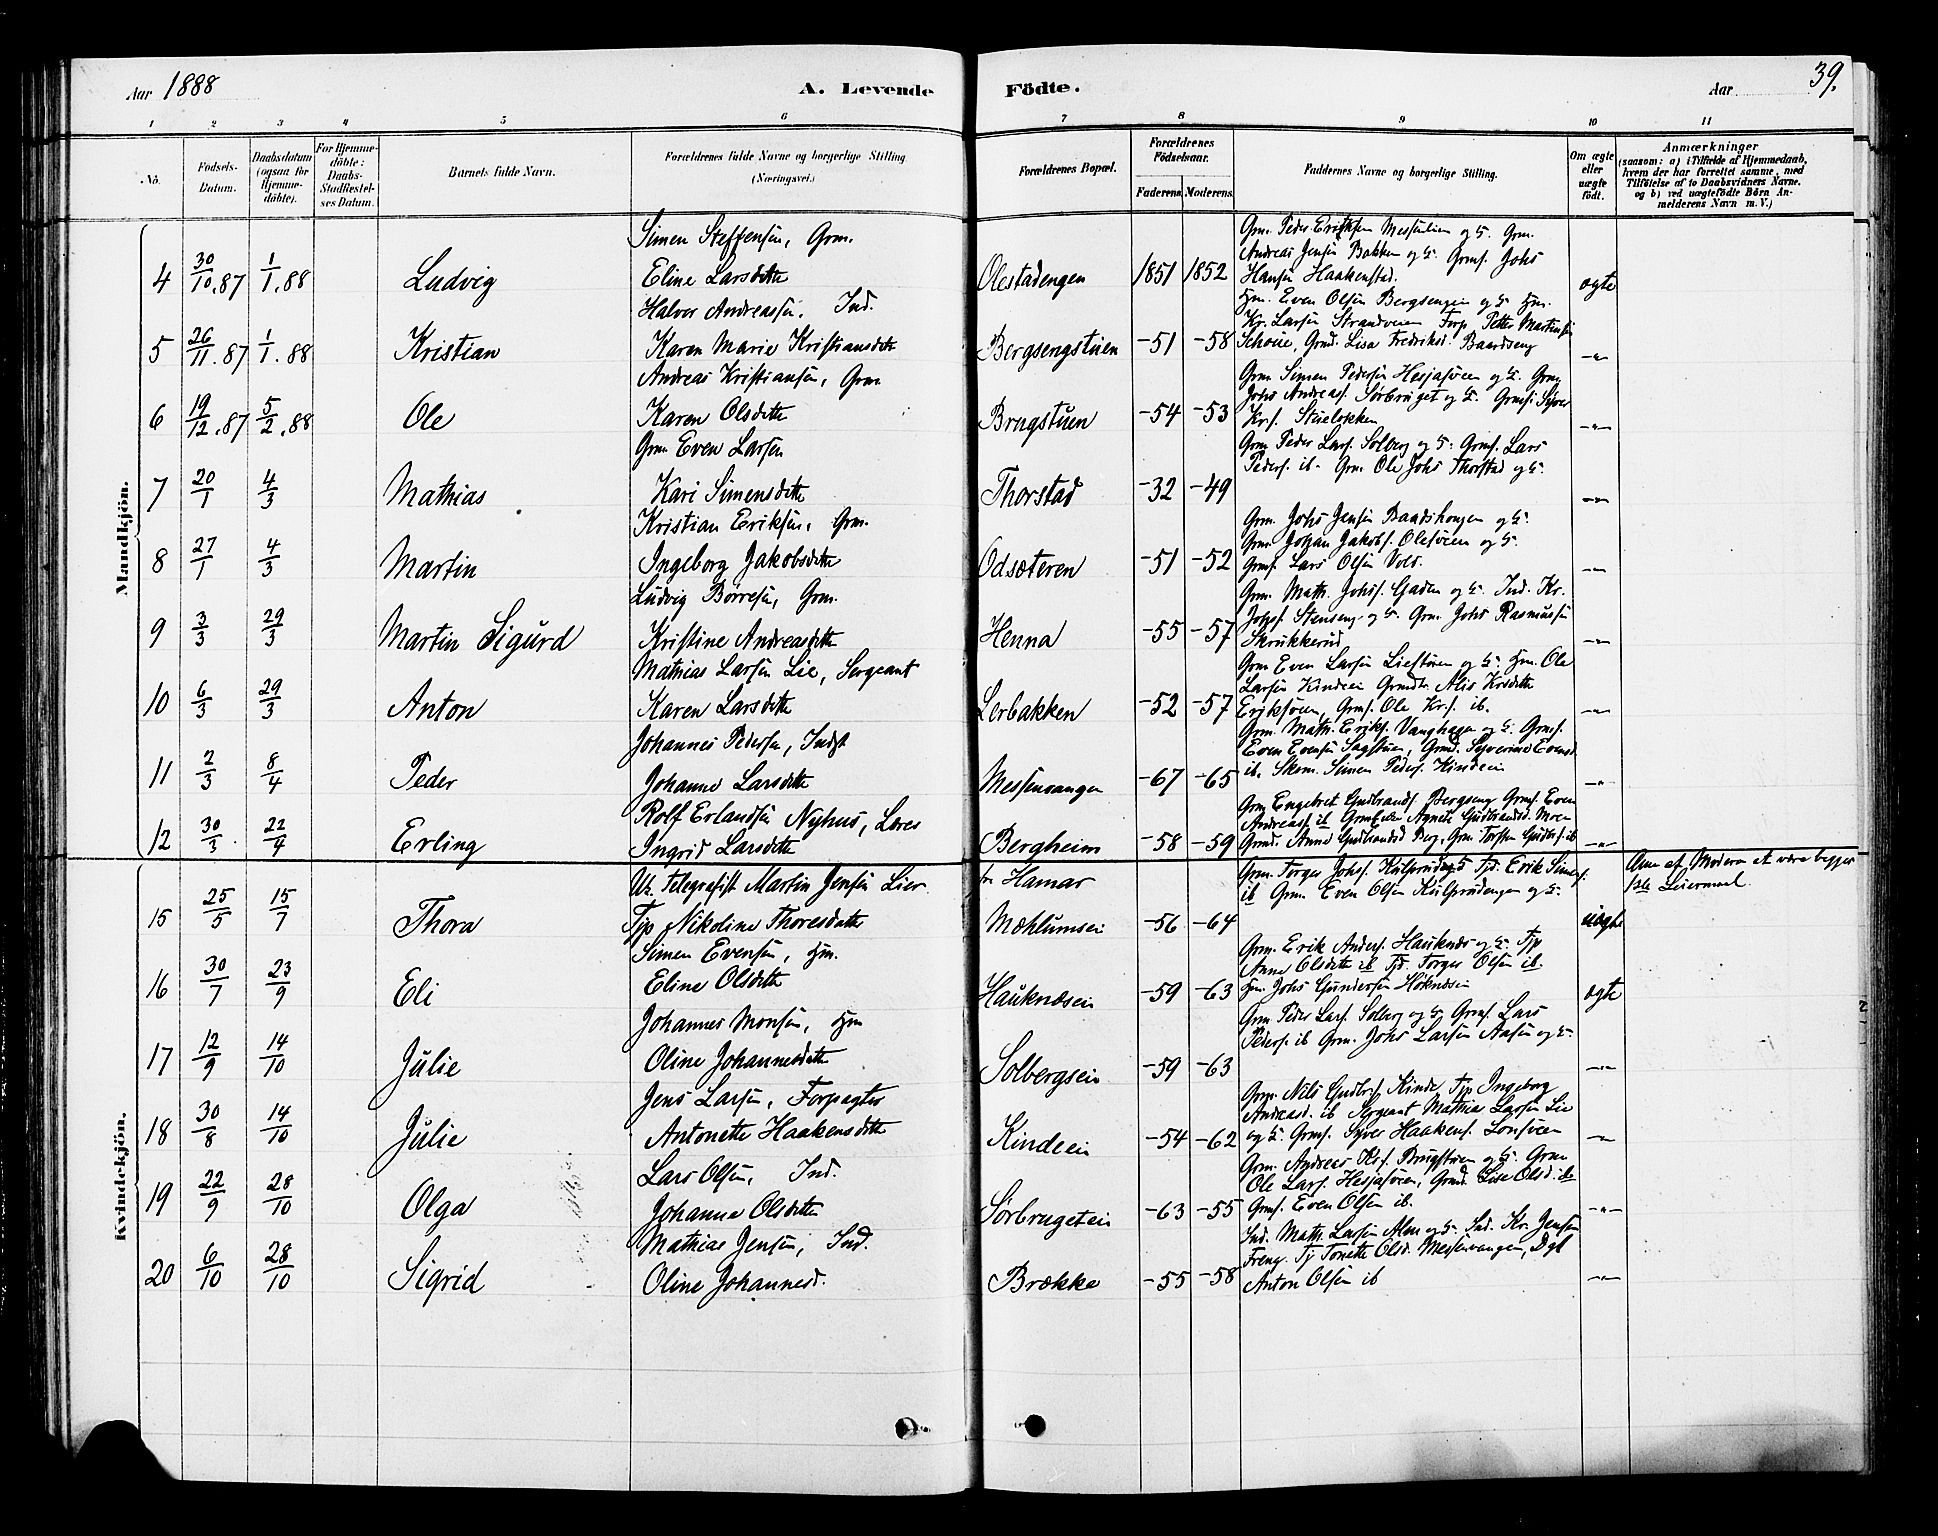 Aar 1888
A. Levende Födte.
Aar
39.
1 2 3 4 5 6 7 8 9 10 11
No.
Födsels-Datum.
Daabsdatum (ogsaa for Hjemmedöbte).
For Hjemmedöbte: Daabs-Stadfæstelses Datum.
Barnets fulde Navn.
Forældrenes fulde Navne og borgerlige Stilling (Næringsvei.)
Forældrenes Bopæl.
Forældrenes Födselsaar.
Faderens. Moderens.
Faddernes Navne og borgerlige Stilling.
Om ægte eller uægte födt.
Anmærkninger
(saasom: a) i Tilfælde af Hjemmedaab,
hvem der har forrettet samme, med
Tilföielse af to Daabsvidners Navne,
og b) ved uægtefödte Börn An-
melderens Navn m. V.)
Mandkjön.
Simen Steffensen, Grm.
4 30/10.87 1/1.88 Ludvig Eline Larsdatter Olestadengen 1851 1852 ægte
Grm. Peder Eriksen Messenlien og H. Grm.
Andreas Jensen Bakken og H. Grmf. Johs
Hansen Haakenstad.
Halvor Andreassen, Ind.
5 26/11.87 1/1.88 Kristian Karen Marie Kristiansdatter Bergsengstuen -51 -58 -"-
Hm. Even Olsen Bergsengen og H. Hm.
Kr. Larsen Strandveien Forp. Petter Martinsen
Schoue, Grmd. Lisa Fredriksd. Baardseng
Andreas Kristiansen, Grm
6 19/12.87 5/2.88 Ole Karen Olsdatter Brugstuen -54 -53 -"-
Grm Simen Pedersen Hesjasveen og H. Grm
Johs Andreas. Sörbruget og H. Grmf. Syver
Krs. Stuelökken
Grm Even Larsen
7 20/1 4/3 Mathias Kari Simensdatter Thorstad -32 -49 -"-
Grm Peder Lars. Solberg og H. Grmf. Lars
Peders. ib. Grm. Ole Johs Thorstad og H.
Kristian Eriksen, Grm.
8 27/1 4/3 Martin Ingeborg Jakobsdatter Odsæteren -51 -52 -"-
Grm. Johs Jensen Baadshaugen og H.
Grm. Johan Jakobs. Olesveen og H.
Grmf. Lars Olsen Vols.
Ludvig Börresen, Grm.
9 3/3 29/3 Martin Sigurd Kristine Andreasdatter Henna -55 -57 -"-
Grm. Math. Johs. Gaden og H. Ind. Kr.
Johs. Stenseng og H. Grm. Johs Rasmussen
Skrukkerud
Mathias Larsen Lie, Sergeant
10 6/3 29/3 Anton Karen Larsdatter Lerbakken -52 -57 -"-
Grm Even Larsen Liestuen og H. Hm. Ole
Larsen Kindeei Grmdtr. Alis Krsdatter
Eriksveen, Grmf. Ole Krs. ib.
Johannes Pedersen, Indst
11 2/3 8/4 Peder Johanne Larsdatter Messenvangen -67 -65 -"-
Grm. Math. Eriks. Vanghagen og H. Grmf.
Even Evensen Sagstuen, Grmd. Syverine Evensd.
ib. Skom. Simen Peders. Kindeei
Rolf Erlandsen Nyhus, Lærer
12 30/3 22/4 Erling Ingrid Larsdatter Bergheim -58 -59 -"-
Grm Engebret Gudbrands. Bergseng Grmf. Even
Andreass. ib Agnete Gudbrandsd. Moen
Grmd. Anne Gudbrandsd. Berg, Grm. Torsten Gudbrs. ib
Kvindekjön.
Uk. Telegrafist Martin Jensen Lier fr Hamar
15 25/5 15/7 Thora Tjp Nikoline Thoresdatter Mæhlumsei -56 -64 uægte
Grm. Torger Johs. Kulprud og H Tjd. Erik Simens.
ib Grm. Even Olsen Kulprudengen og H.
Anm. af Moderen at være begges
1ste Leiermaal.
Simen Evensen, Hm.
16 30/7 23/9 Eli Eline Olsdatter Hauknæsei -59 -63 ægte
Grm. Erik Anders. Hauknæs og H. Tjp
Anne Olsdatter ib Tjd. Torger Olsen ib.
Hm. Johs Gundersen Höknæsei
Johannes Monsen, Hm
17 12/9 14/10 Julie Oline Johannesdatter Solbergsei -59 -63 -"-
Grm Peder Lars. Solberg og H Grmf. Lars
Peders. ib Grm. Johs Larsen Aasen og H.
Jens Larsen, Forpagter
18 30/8 14/10 Julie Antonette Haakensdatter Kindeei -54 -62 -"-
Grm. Nils Gudbrs. Kinde Tjp Ingeborg
Andreasd. ib Sergeant Mathias Larsen Lie
og H. Grmf. Syver Haakens. Lonsveen
Lars Olsen, Ind.
19 22/9 28/10 Olga Johanna Olsdatter Sörbrugetei -63 -55 -"-
Grm. Andreas Krs. Brugstuen og H. Grm
Ole Lars. Hesjasveen, Grmd. Lise Olsd. ib
Grmf. Even Olsen ib.
Mathias Jensen, Ind.
20 6/10 28/10 Sigrid Oline Johannesd. Brække -55 -58 -"-
Ind. Math. Larsen Alm og H. Ind. Kr. Jensen
Freng. Tj Tonette Olsd. Messenvangen, Dgl
Anton Olsen ib